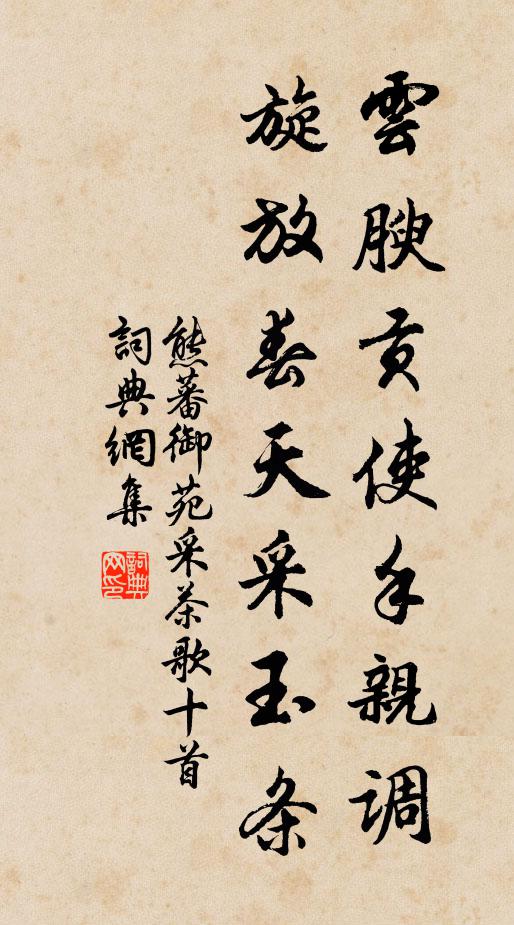 雲腴貢使手親調
旋放春天采玉条
熊蕃御苑采茶歌十首
詞典網集
詞典
网印